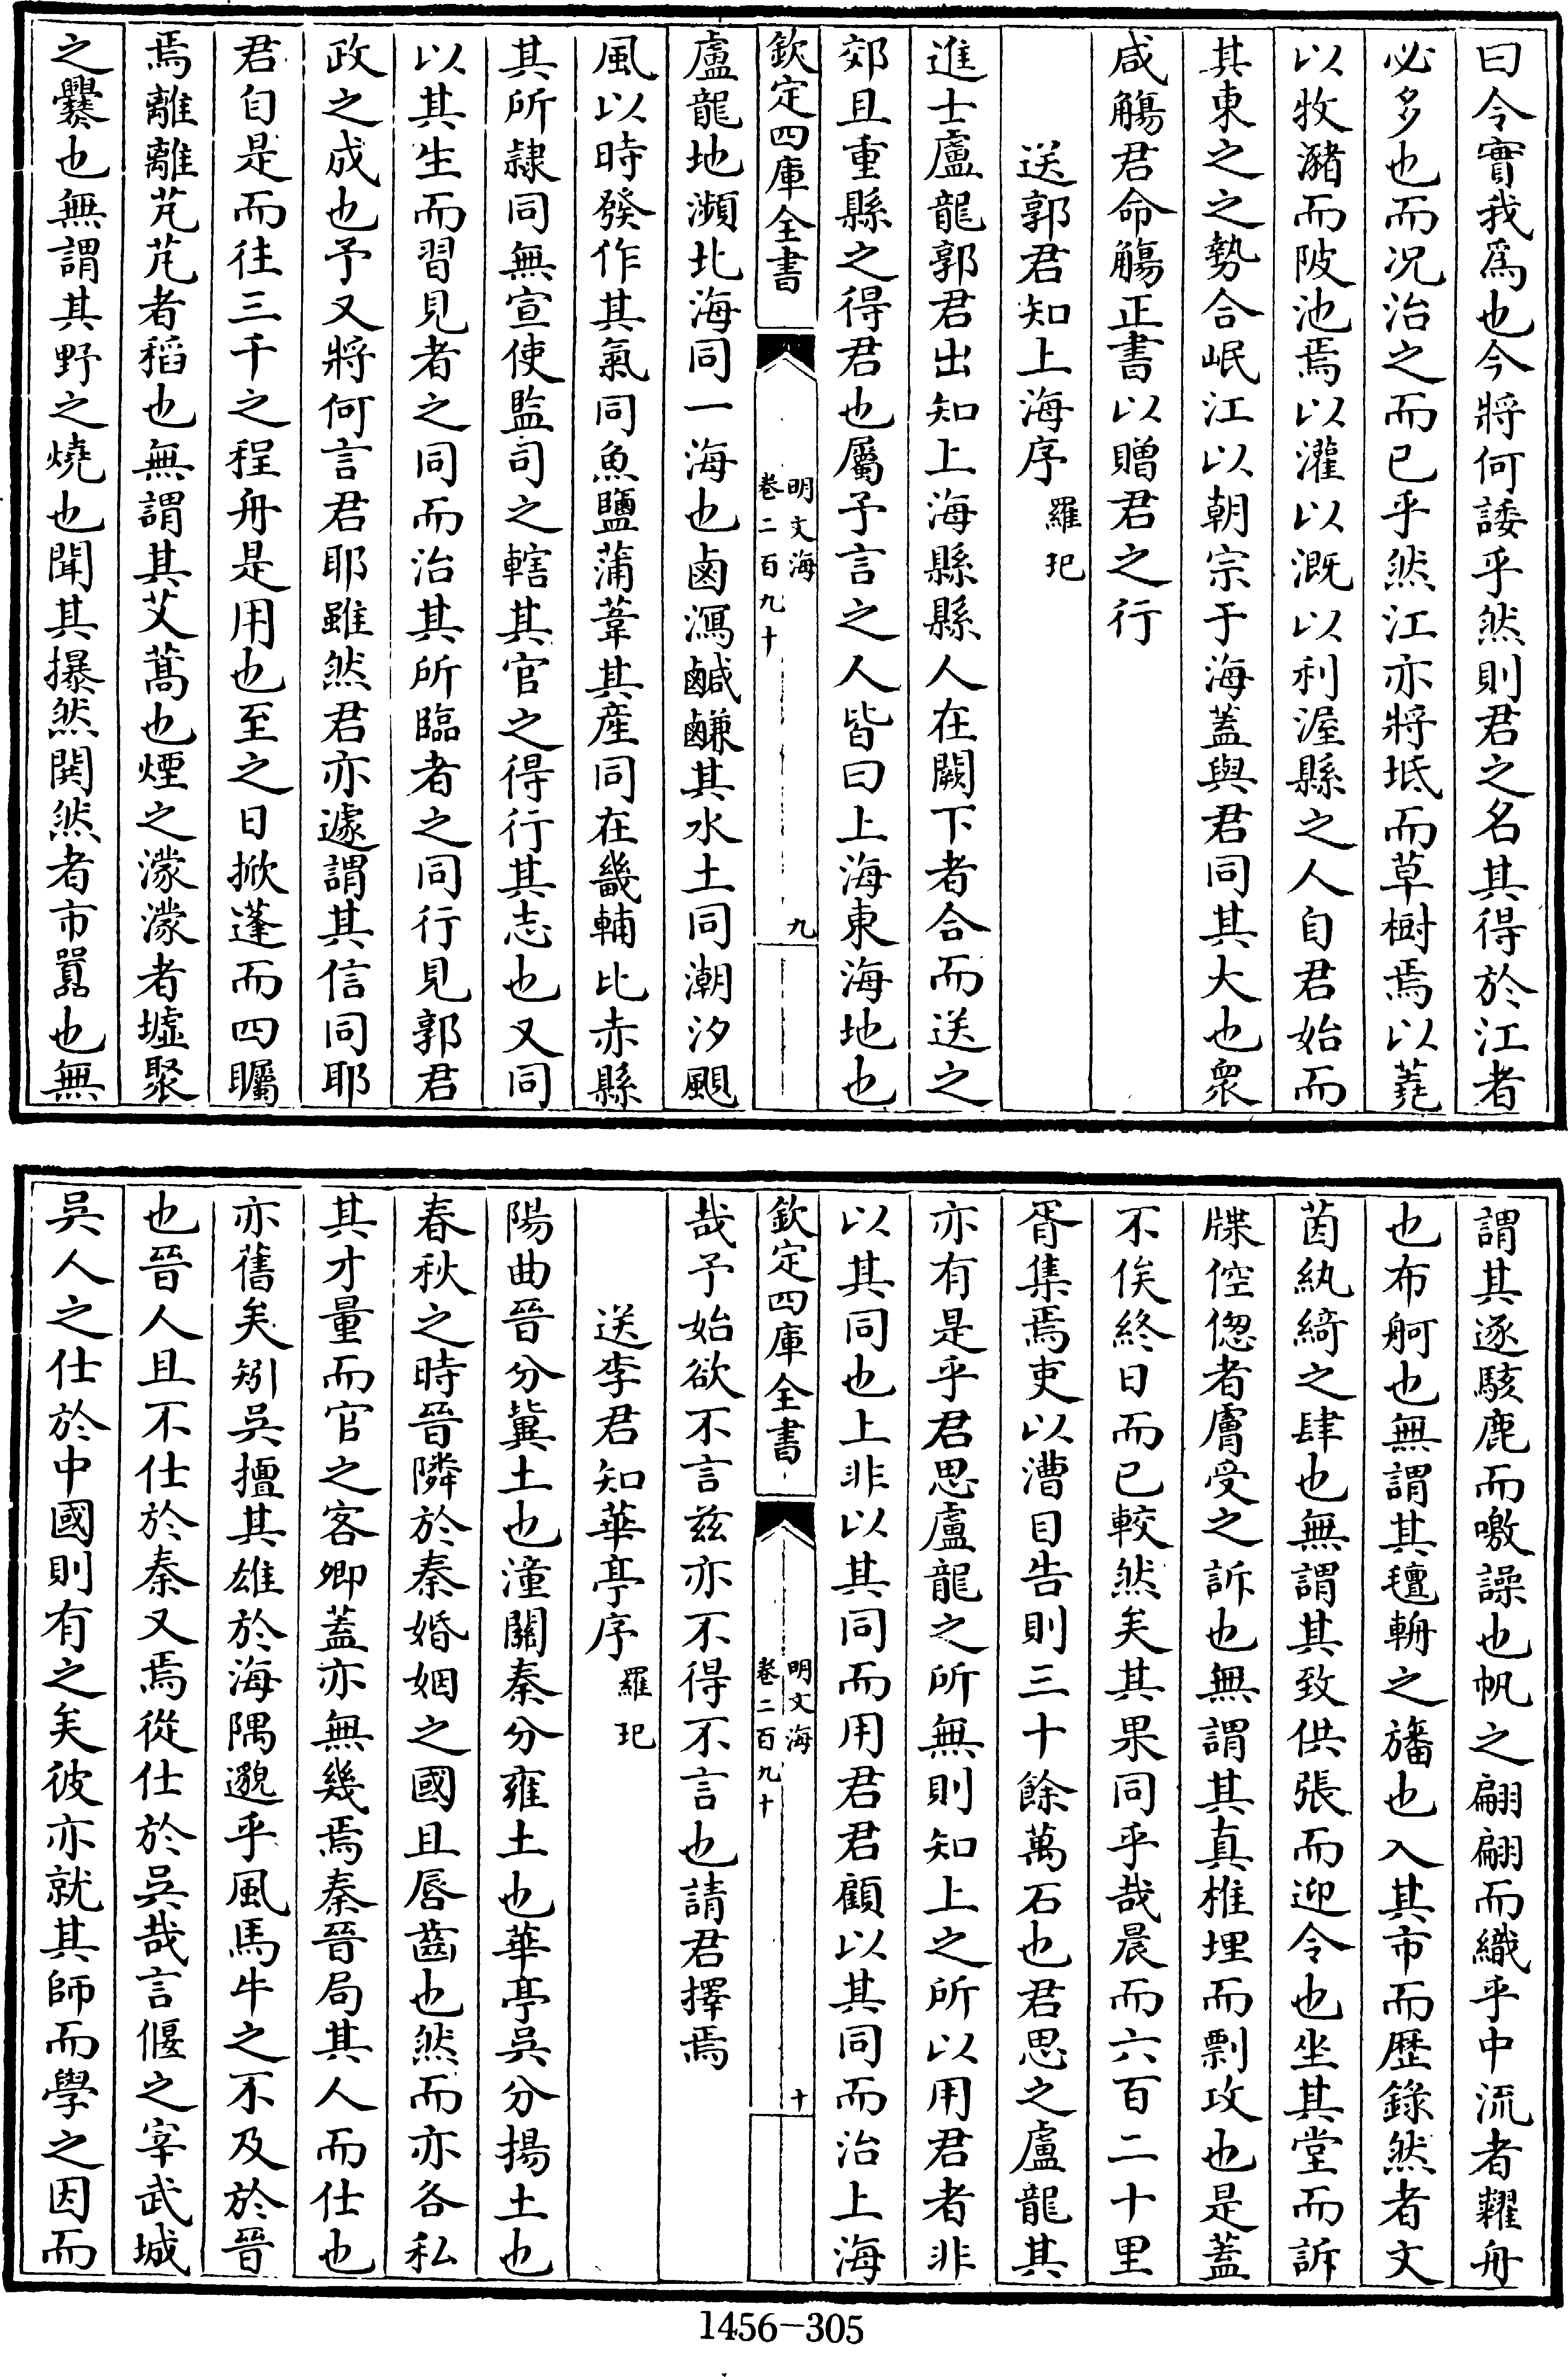 曰令實我爲也今將何諉乎然則君之名其得於江者
必多也而况治之而已乎然江亦將坻而草樹焉以蕘
以牧瀦而陂池焉以灌以溉以利渥縣之人自君始而
其東之之勢合岷江以朝宗于海蓋與君同其大也衆
咸觴君命觴正書以贈君之行
送郭君知上海序 羅玘
進士盧龍郭君出知上海縣縣人在闕下者合而送之
郊且重縣之得君也屬予言之人皆曰上海東海地也
欽定四庫全書 明文海 卷二百九十 九
盧龍地瀕北海同一海也鹵潟鹹鹻其水土同潮汐颶
風以時發作其氣同魚鹽蒲葦其產同在畿輔比赤縣
其所隸同無宣使監司之轄其官之得行其志也又同
以其生而習見者之同而治其所臨者之同行見郭君
政之成也予又將何言君耶雖然君亦遽謂其信同耶
君自是而往三千之程舟是用也至之日掀蓬而四矚
焉離離芃芃者稻也無謂其艾蒿也煙之濛濛者墟聚
之爨也無謂其野之燒也聞其㩧然閧然者市囂也無
謂其逐駭鹿而噭譟也帆之翩翩而織乎中流者糶舟
也布舸也無謂其氊軿之旛也入其市而歷錄然者文
茵紈綺之肆也無謂其致供張而迎令也坐其堂而訴
牒倥偬者膚受之訴也無謂其真椎埋而剽攻也是蓋
不俟終日而已較然矣其果同乎哉晨而六百二十里
胥集焉吏以漕目告則三十餘萬石也君思之盧龍其
亦有是乎君思盧龍之所無則知上之所以用君者非
以其同也上非以其同而用君君顧以其同而治上海
欽定四庫全書 明文海 卷二百九十 十
哉予始欲不言茲亦不得不言也請君擇焉
送李君知華亭序 羅玘
陽曲晉分冀土也潼關秦分雍土也華亭吳分揚土也
春秋之時晉隣於秦婚姻之國且唇齒也然而亦各私
其才量而官之客卿蓋亦無幾焉秦晉局其人而仕也
亦舊矣矧吳擅其雄於海隅邈乎風馬牛之不及於晉
也晉人且不仕於秦又焉從仕於吳哉言偃之宰武城
吳人之仕於中國則有之矣彼亦就其師而學之因而
1456-305